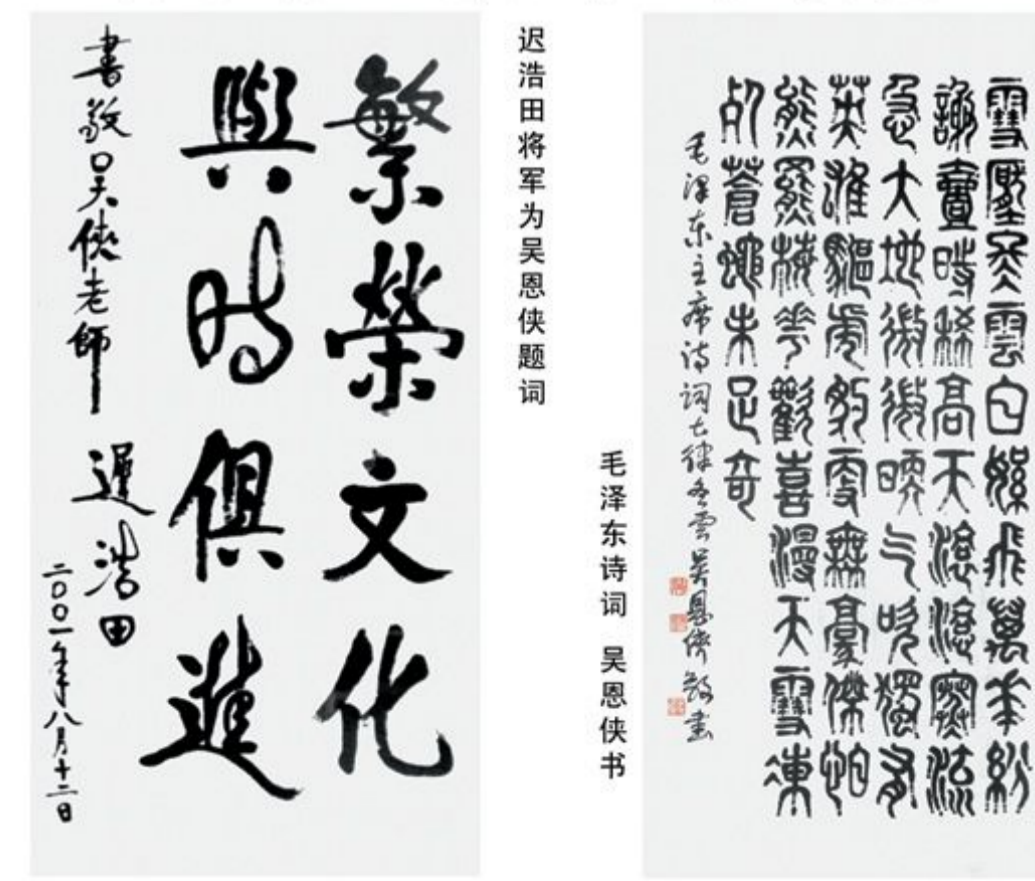 繁榮文化
與時俱進
書敬吴俠老師
遲浩田
二〇〇一年八月十二日
迟浩田将军为吴恩侠题词
雪壓冬雲白絮飛萬華紛
謝壹時稀高天滾滾寒流
急大地微微暖气吹獨有
英雄驅虎豹更無豪傑怕
熊羆梅花歡喜漫天雪凍
死蒼蠅未足奇
毛泽东主席诗词七律冬雲吴恩俠敬書
毛泽东诗词 吴恩侠书